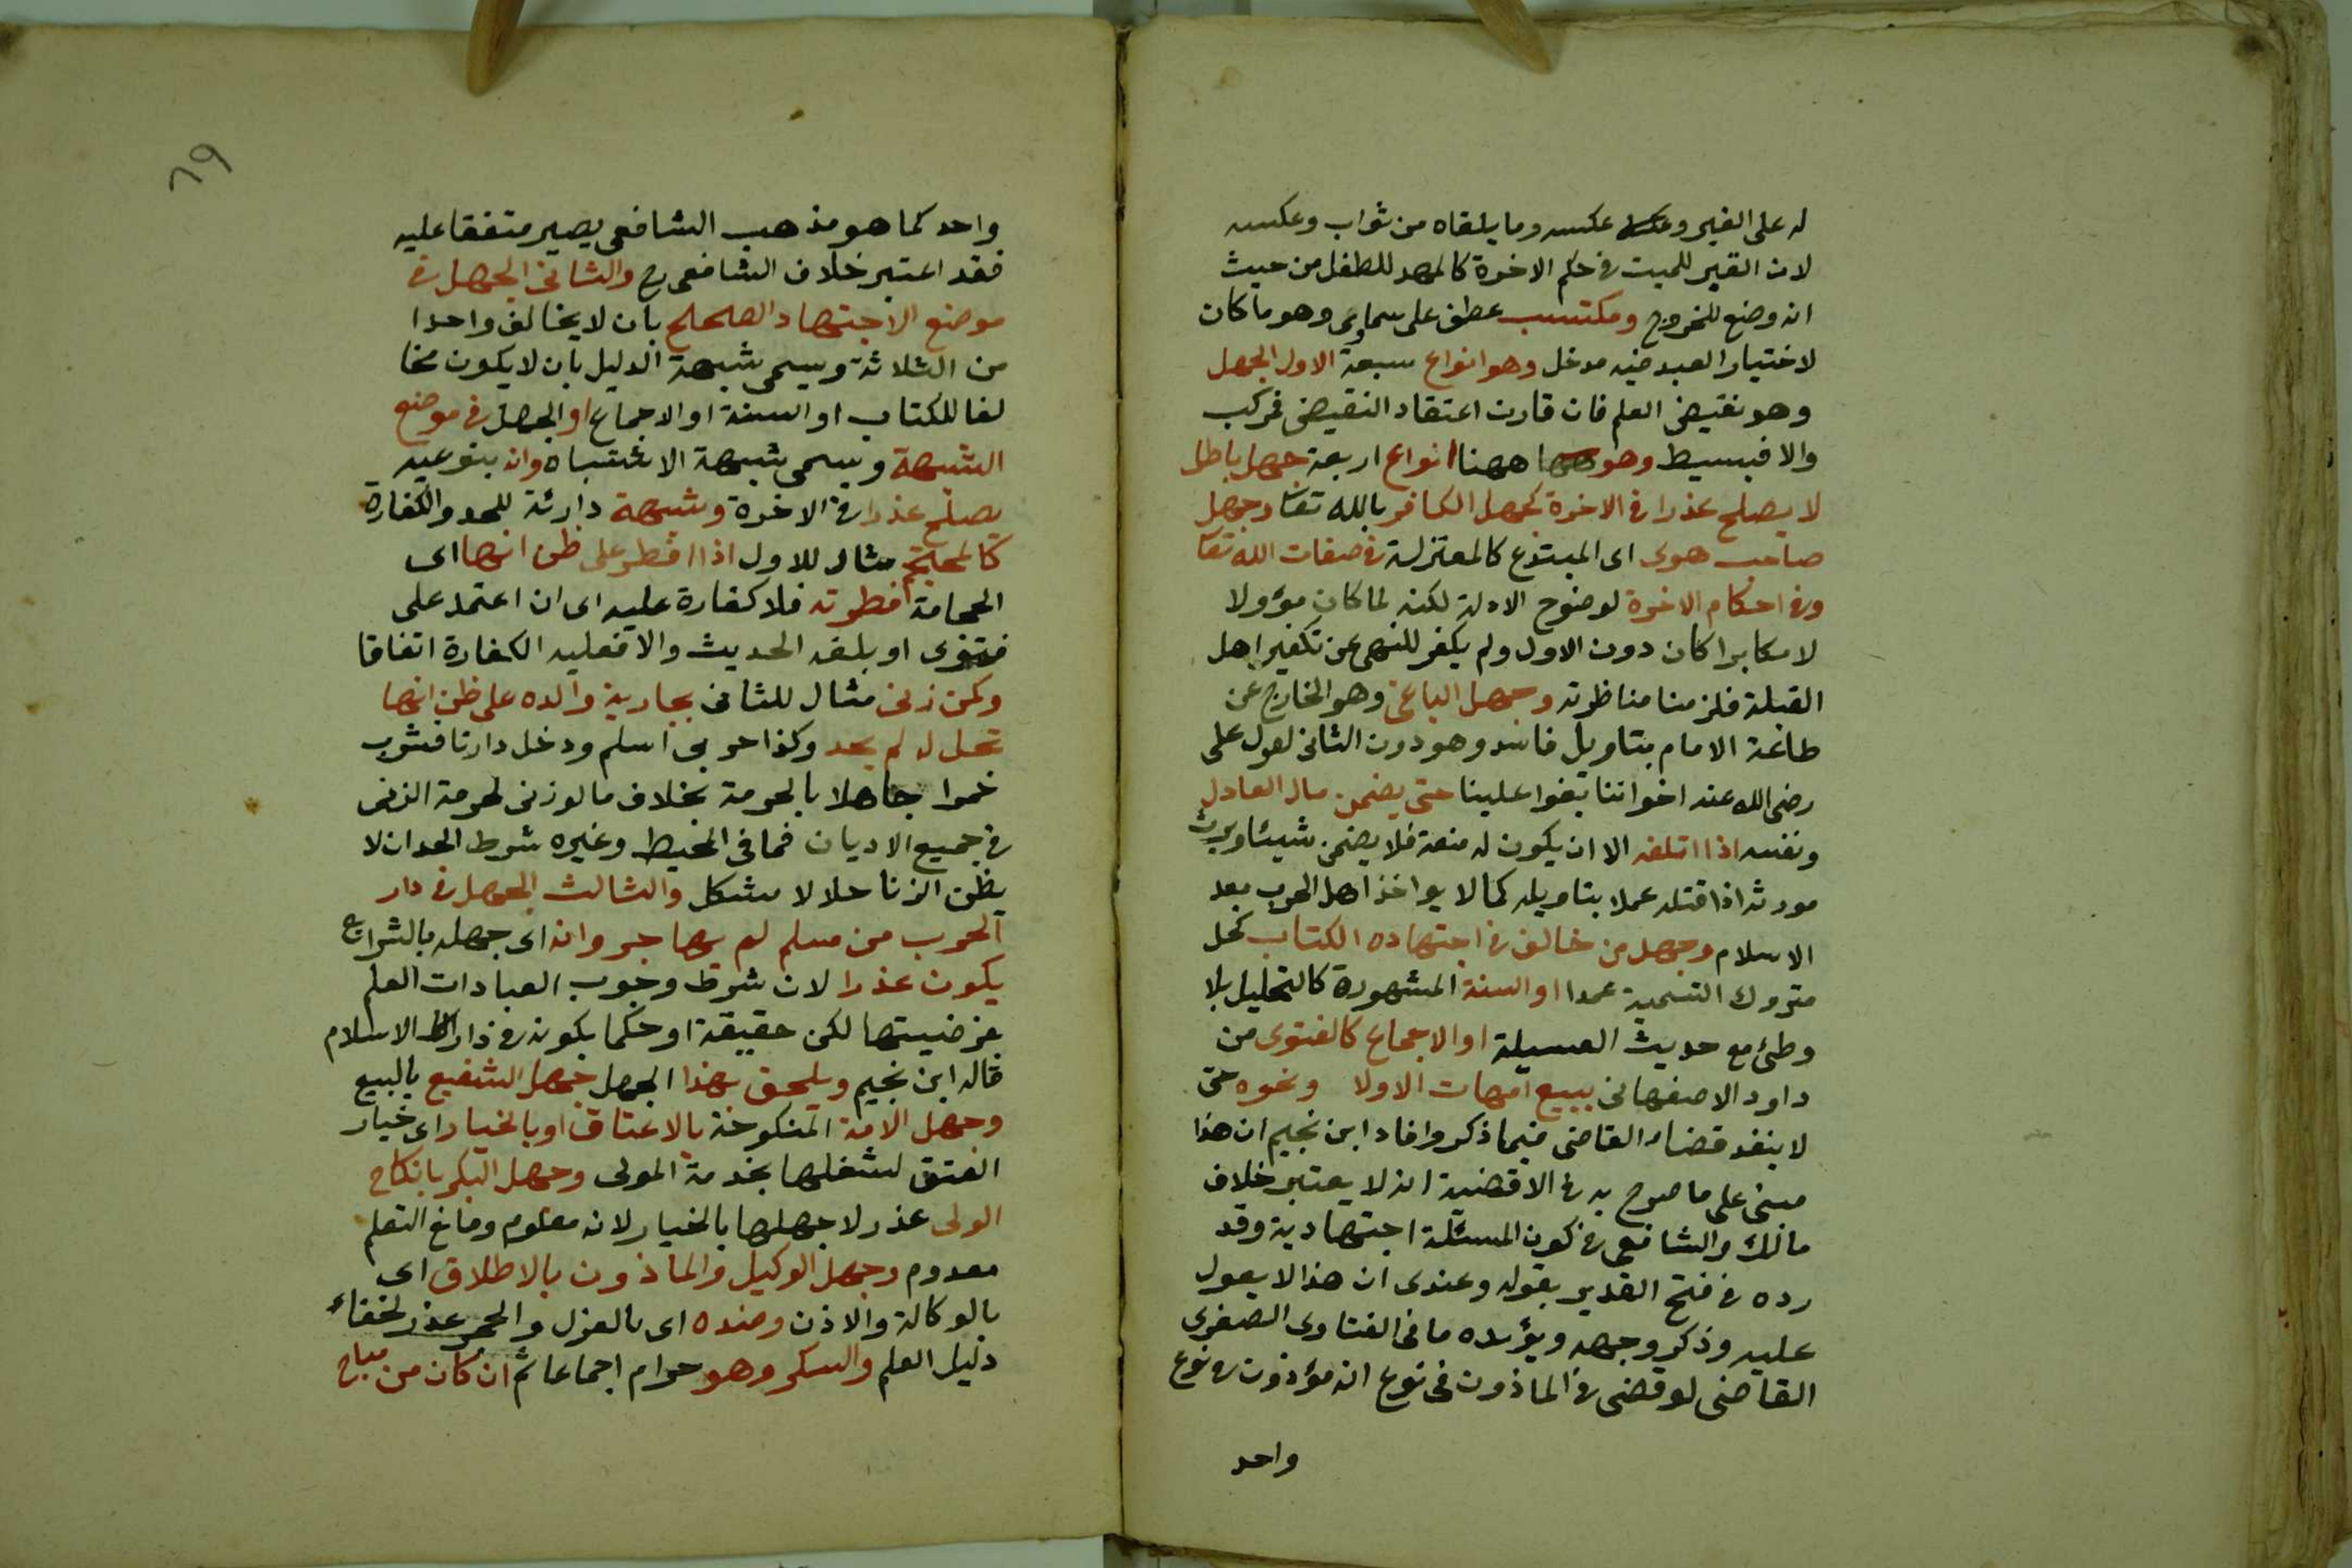 له على الغير وعكسه عكسه وما يلقاه من ثواب وعكسه
لان القبر للميت فى حكم الاخرة كالمهد للطفل من حيث
انه وضع للخروج ومكتسب عطف على سماوى وهو ما كان
لاختيار العبد فيه مدخل وهو انواع سبعة الاول الجهل
وهو نقيض العلم فان قارن اعتقاد النقيض فمركب
والا فبسيط وهو ههنا انواع اربعة جهل باطل
لا يصلح عذرا فى الاخرة كجهل الكافر بالله تعا وجهل
صاحب هوى اى المبتدع كالمعتزلة فى صفات الله تعا
وفى احكام الاخرة لوضوح الادلة لكنه لما كان مؤولا
لا مكابرا كان دون الاول ولم يكفر للنهى عن تكفير اهل
القبلة فلزمنا مناظرته وجهل الباغى وهو الخارج عن
طاعة الامام بتاويل فاسد وهو دون الثانى لقول على
رضى الله عنه اخواننا بغوا علينا حتى يضمن مال العادل
ونفسه اذا اتلفه الا ان يكون له منعة فلا يضمن شيئا ويرث
مورثه اذا قتله عملا بتاويله كما لا يواخذ اهل الحرب بعد
الاسلام وجهل من خالف فى اجتهاده الكتاب كحل
متروك التسمية عمدا او السنة المشهورة كالتحليل بلا
وطئ مع حديث العسيلة او الاجماع كالفتوى من
داود الاصفهانى ببيع امهات الاولا ونحوه حتى
لا ينفذ قضاء القاضى فيما ذكر وافاد ابن نجيم ان هذا
مبنى على ما صرح به فى الاقضية انه لا يعتبر خلاف
مالك والشافعى فى كون المسئلة اجتهادية وقد
رده فى فتح القدير بقوله وعندى ان هذا لا يعول
عليه وذكر وجهه ويؤيده ما فى الفتاوى الصغرى
القاضى لو قضى فى الماذون فى نوع انه مؤذون فى نوع
واحد
٦٩
واحد كما هو مذهب الشافعى يصير متفقا عليه
فقد اعتبر خلاف الشافعى رح والثانى الجهل فى
موضع الاجتهاد الصحيح بان لا يخالف واحدا
من الثلاثة ويسمى شبهة الدليل بان لا يكون مخا
لفا للكتاب او السنة او الاجماع او الجهل فى موضع
الشبهة ويسمى شبهة الاشتباه وانه بنوعيه
يصلح عذرا فى الاخرة وشبهة دارئة للحد والكفارة
كالمحتجم مثال للاول اذا افطر على ظن انها اى
الحجامة افطرته فلا كفارة عليه اى ان اعتمد على
فتوى او بلغه الحديث والا فعليه الكفارة اتفاقا
وكمن زنى مثال للثانى بجارية والده على ظن انها
تحل له لم يحد وكذا حربى اسلم ودخل دارنا فشرب
خمرا جاهلا بالحرمة بخلاف ما لو زنى لحرمة الزنى
فى جميع الاديان فما فى المحيط وغيره شرط الحد ان لا
يظن الزنا حلالا مشكل والثالث الجهل فى دار
الحرب من مسلم لم يهاجر وانه اى جهله بالشرايع
يكون عذرا لان شرط وجوب العبادات العلم
بفرضيتها لكن حقيقة او حكما بكونه فى دار الاسلام
قاله ابن نجيم ويلحق بهذا الجهل جهل الشفيع بالبيع
وجهل الامة المنكوحة بالاعتاق او بالخيار اى خيار
العتق لشغلها بخدمة المولى وجهل البكر بانكاح
الولى عذر لا جهلها بالخيار لانه معلوم ومانع التعلم
معدوم وجهل الوكيل والماذون بالاطلاق اى
بالوكالة والاذن وضده اى بالعزل والحجر عذر لخفاء
دليل العلم والسكر وهو حرام اجماعا ثم ان كان من مباح